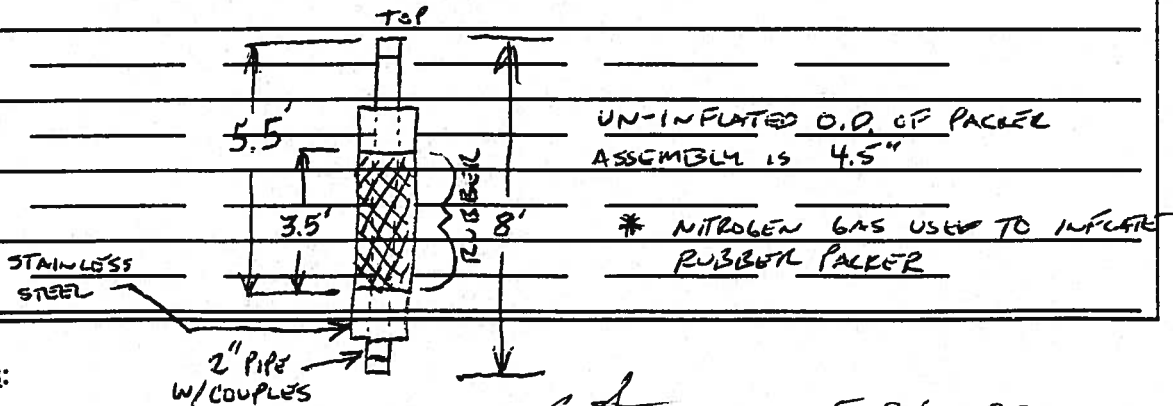 TOP
5.5'
UN-INFLATED O.D. OF PACKER
ASSEMBLY IS 4.5"
3.5'
RUBBER
8'
* NITROGEN GAS USED TO INFLATE
RUBBER PACKER
STAINLESS
STEEL
2" PIPE
W/COUPLES